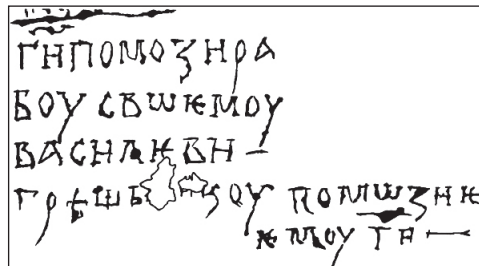 ГИПОМОЗИРА
БОУ СВШѤМОУ
ВАСИЛѤВИ
ГРѢШЬ ЗОУ ПОМШЗИ Ѥ
ѤМОУ ГИ